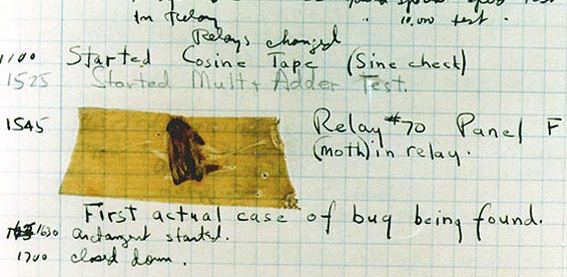 in relay " 11,000 test.
Relays changed
1100 Started Cosine Tape (Sine check)
1525 Started Mult + Adder Test.
1545 Relay #70 Panel F
(moth) in relay.
First actual case of bug being found.
1630 arctangent started.
1700 closed down.